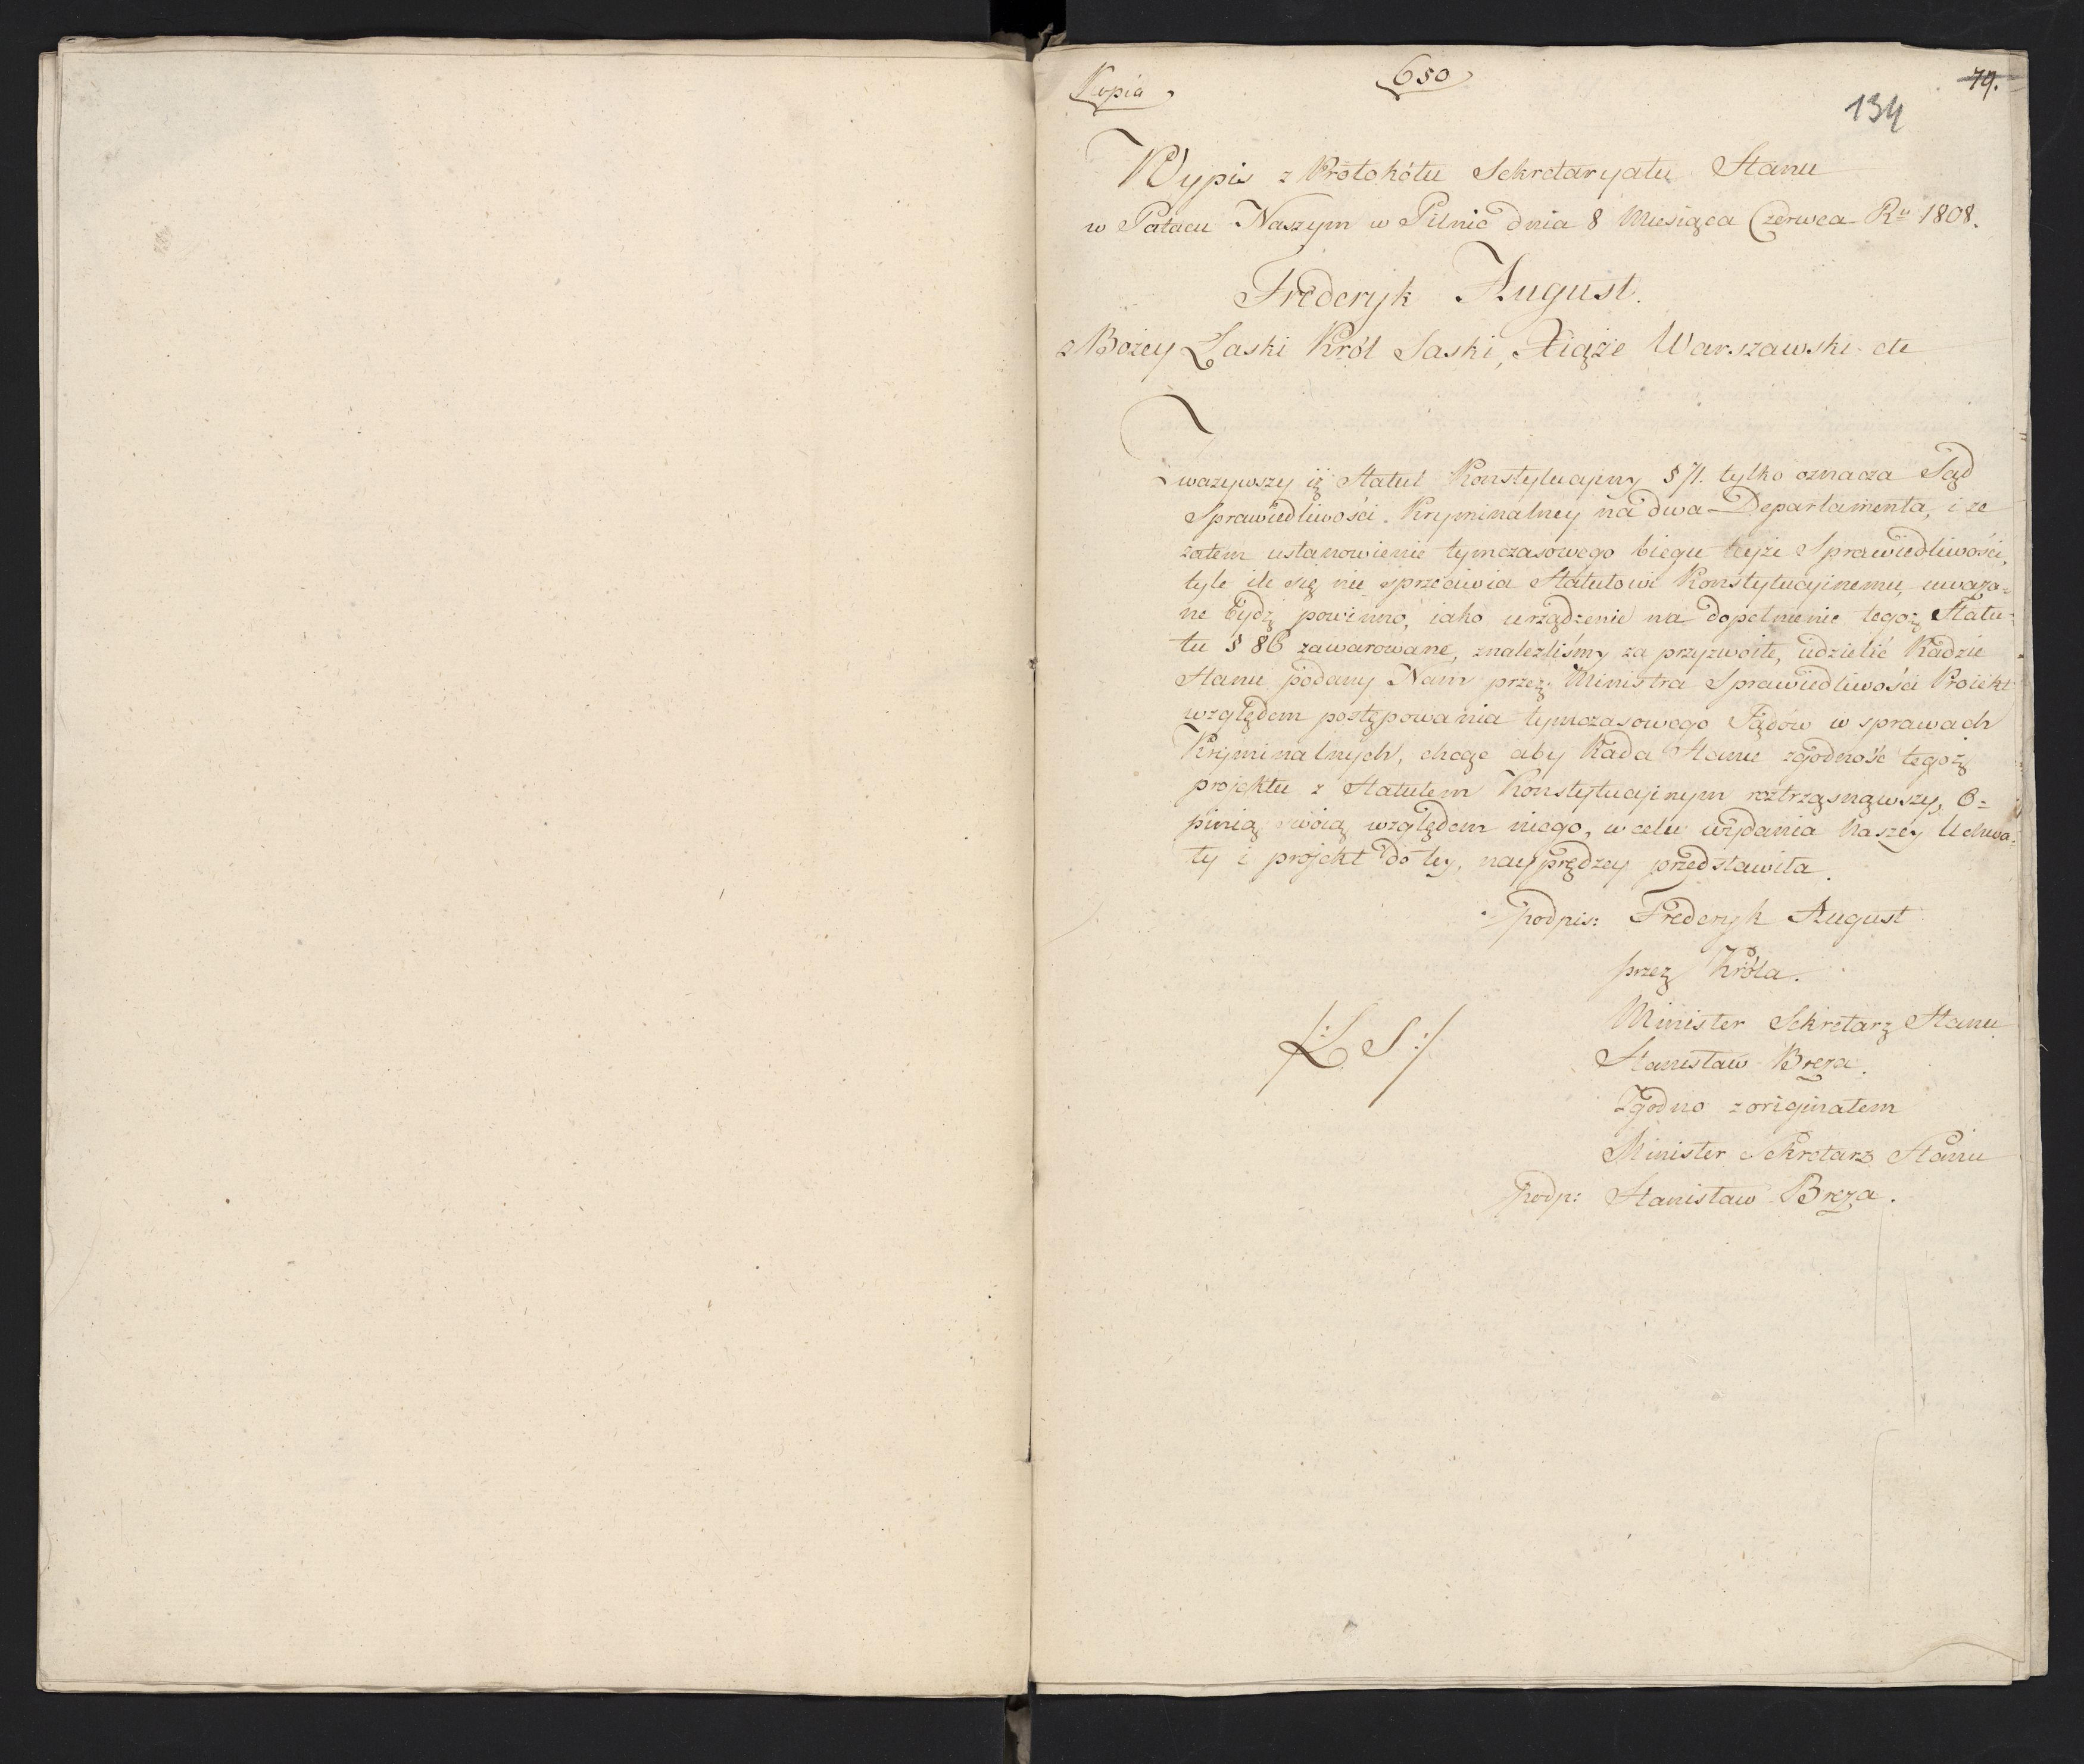 Kopia
650
79.
134
Wypis z Protokółu Sekretaryatu Stanu
w Pałacu Naszym w Pilnic dnia 8 Miesiąca Czerwca Ru 1808.
Frederyk August.
z Bożey Łaski Król Saski, Xiąże Warszawski etc
Zważywszy iż Statut Konstytucyiny § 71. tylko oznacza Sąd
Sprawiedliwości Kryminalney na dwa Departamenta, i że
zatem ustanowienie tymczasowego biegu teyże Sprawiedliwości,
tyle ile się nie sprzeciwia Statutowi Konstytucyinemu, uważa-
ne bydź powinno, iako urządzenie na dopełnienie tegoż Statu-
tu § 86 zawarowane, znalezliśmy za przyzwoite, udzielić Radzie
Stanu podany Nam przez Ministra Sprawiedliwości Proiekt
względem postępowania tymczasowego Sądów w sprawach
Kryminalnych, chcąc aby Rada Stanu zgodność tegoż
projektu z Statutem Konstytucyinym roztrząsnąwszy, O-
pinią swoią względem niego, w celu wydania Naszey Uchwa-
ły i projekt do tey, nayprędzey przedstawiła.
podpis: Frederyk August
przez Króla.
Minister Sekretarz Stanu
/:L S:/
Stanisław Breza.
Zgodno z originałem
Minister Sekretarz Stanu
podp: Stanisław Breza.